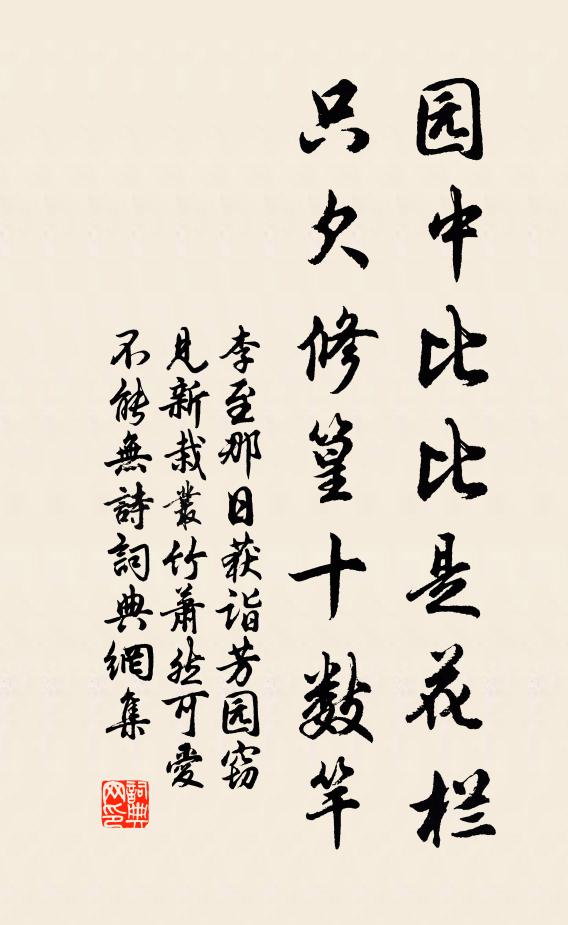 园中比比是花栏
只欠修篁十数竿
李至那日获诣芳园窃
见新栽叢竹蕭然可愛
不能無詩詞典網集
詞典网印